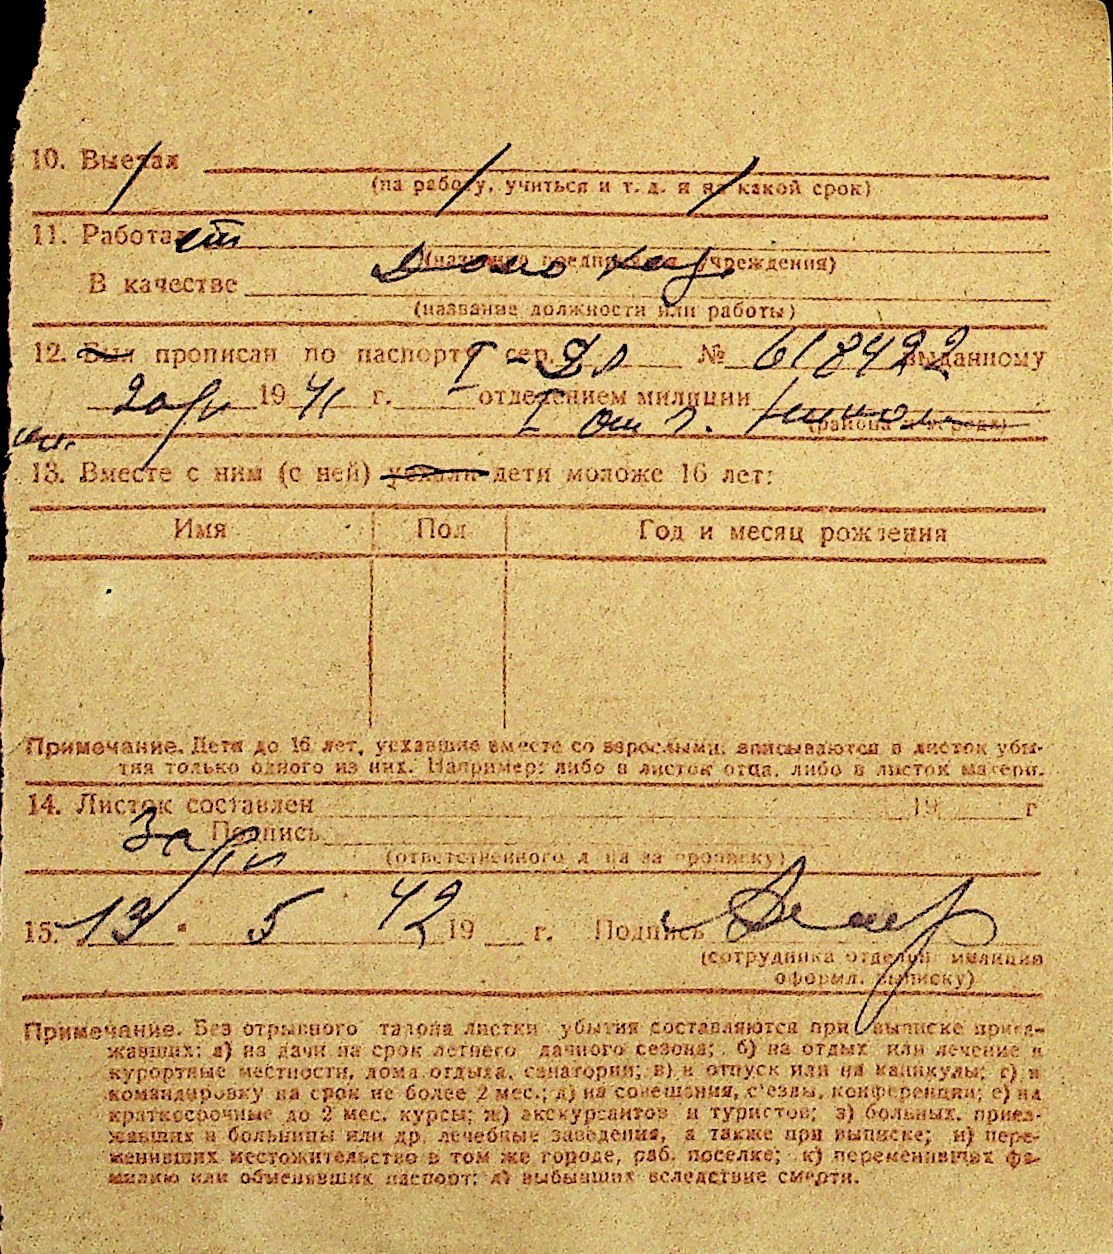 10. Выехал
(на работу, учиться и т. д. и на какой срок)
11. Работает
(название предприятия учреждения)
В качестве
(название должности или работы)
12. Был прописан по паспорту сер. № 618422 выданному
19 41 г. I отделением милиции
(района и города)
13. Вместе с ним (с ней) уехали дети моложе 16 лет:
Имя Пол Год и месяц рождения
Примечание. Дети до 16 лет, уехавшие вместе со взрослыми, вписываются в листок убы-
тия только одного из них. Например: либо в листок отца, либо в листок матери.
14. Листок составлен 19 г
Подпись
(ответственного лица за прописку)
15. 13 5 42 19 г. Подпись
(сотрудника отделен. милиции
оформл. выписку)
Примечание. Без отрывного талона листки убытия составляются при выписке приез-
жавших: а) на дачи на срок летнего дачного сезона; б) на отдых или лечение в
курортные местности, дома отдыха, санатории; в) в отпуск или на каникулы; г) в
командировку на срок не более 2 мес.; д) на совещания, с'езды, конференции; е) на
краткосрочные до 2 мес. курсы; ж) экскурсантов и туристов; з) больных, приез-
жавших в больницы или др. лечебные заведения, а также при выписке; и) пере-
менивших местожительство в том же городе, раб. поселке; к) переменивших фа-
милию или обменявших паспорт; л) выбывших вследствие смерти.